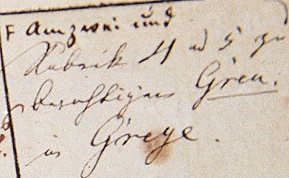 F Amzwei und
Rubrik 4 ud 5 zu
berichtigen Greu.
in Greye.